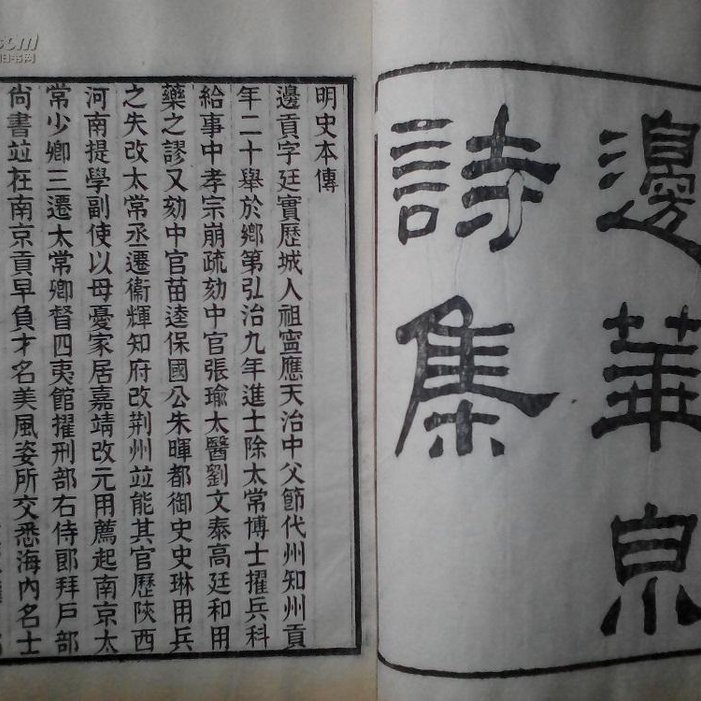 邊華泉
詩集
明史本傳
邊貢字廷實歷城人祖寧應天治中父節代州知州貢
年二十舉於鄉第弘治九年進士除太常博士擢兵科
給事中孝宗崩疏劾中官張瑜太醫劉文泰高廷和用
藥之謬又劾中官苗逵保國公朱暉都御史史琳用兵
之失改太常丞遷衞輝知府改荆州並能其官歷陝西
河南提學副使以母憂家居嘉靖改元用薦起南京太
常少卿三遷太常卿督四夷館擢刑部右侍郎拜戶部
尚書並在南京貢早負才名美風姿所交悉海內名士